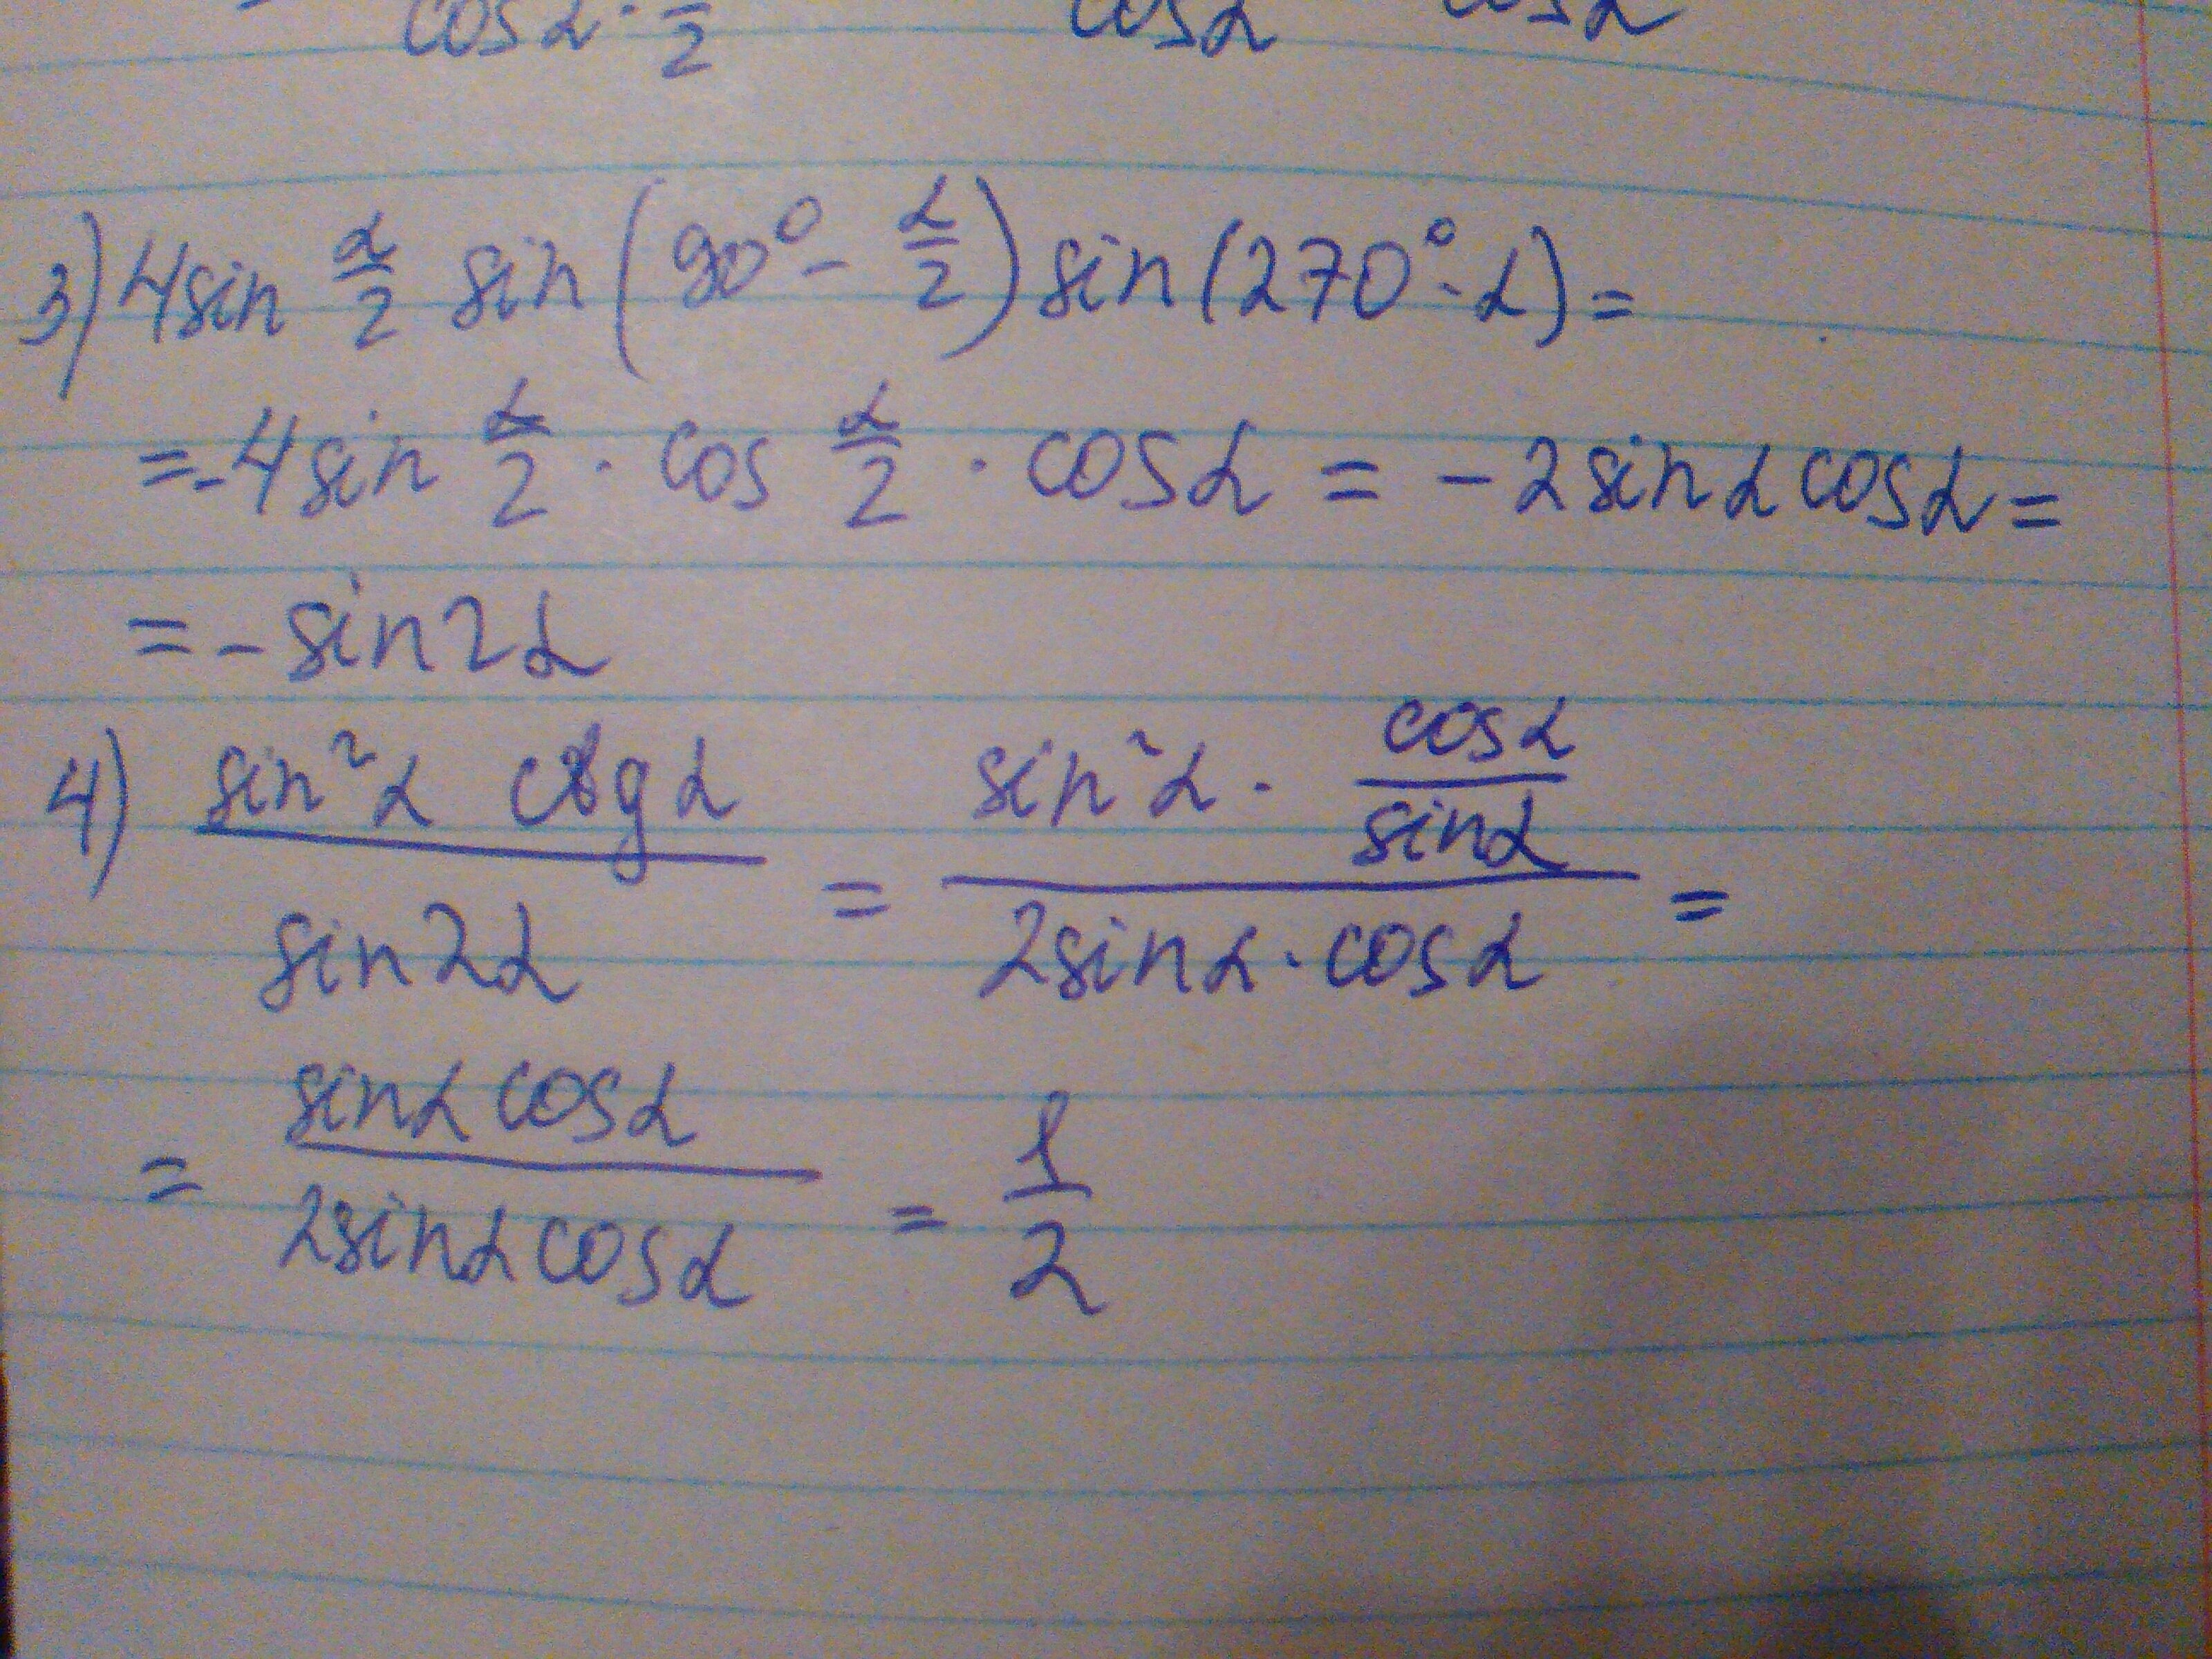 cosα · /2 cosα cosα
3) 4sin α/2 sin(90° - α/2) sin(270° - α) =
= -4sin α/2 · cos α/2 · cosα = -2sinα cosα =
= -sin2α
4) sin²α ctgα / sin2α = sin²α · cosα/sinα / 2sinα · cosα =
= sinα cosα / 2sinα cosα = 1/2